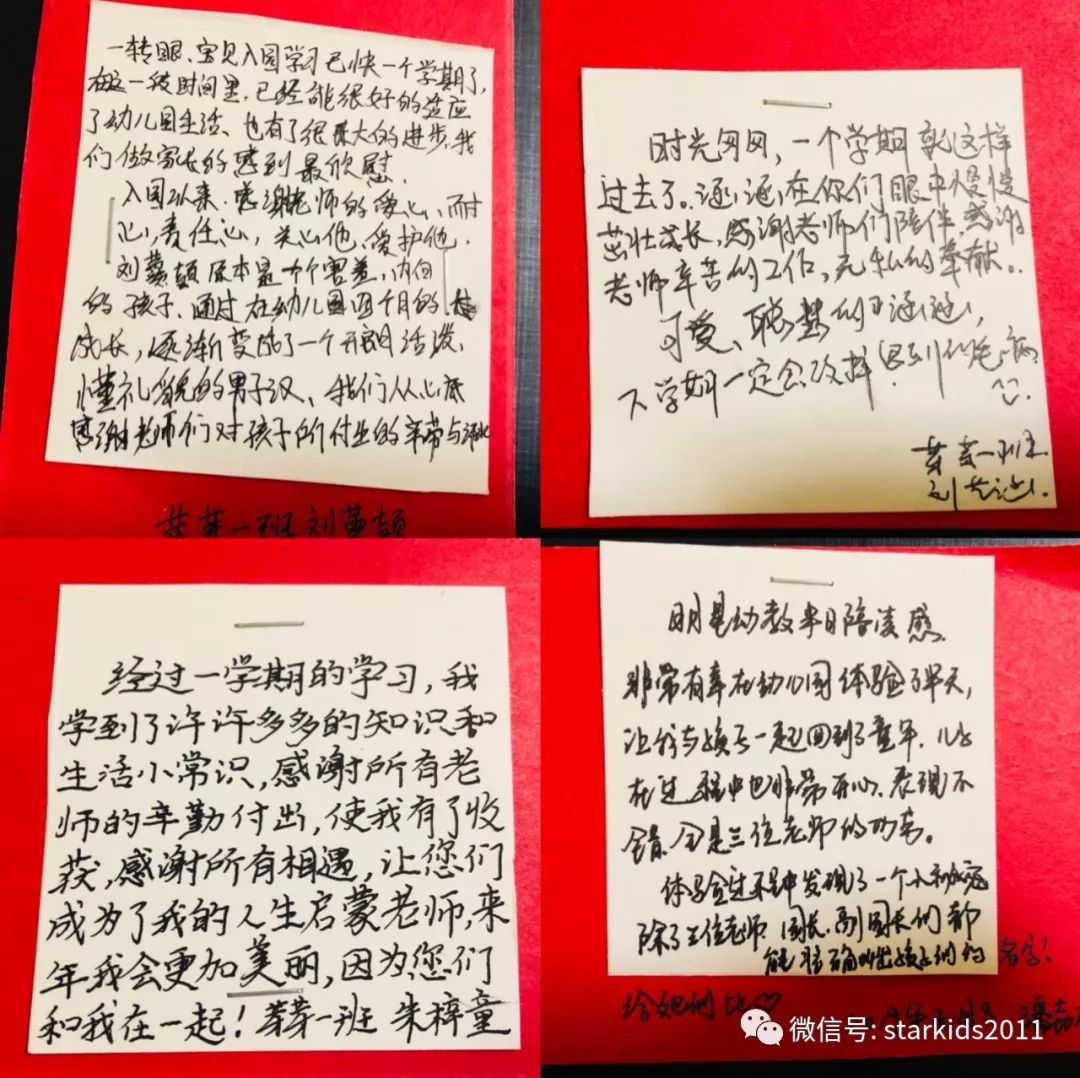 一转眼、宝贝入园学习已快一个学期了,
在这一段时间里,已经能很好的适应
了幼儿园生活、也有了很大的进步,我
们做家长的感到最欣慰.
入园以来,感谢老师的爱心、耐
心,责任心,关心他、爱护他.
原本是一个害羞、内向
的孩子、通过在幼儿园四个月的
成长,逐渐变成了一个开朗活泼、
懂礼貌的男子汉、我们从心底
感谢老师们对孩子的付出的辛劳与
芽芽一班
时光匆匆,一个学期就这样
过去了。涵涵在你们眼中慢慢
茁壮成长,感谢老师们陪伴,感谢
老师辛苦的工作,无私的奉献。
可爱、聪慧的涵涵,
下学期一定会改掉迟到的
芽芽一班
经过一学期的学习,我
学到了许许多多的知识和
生活小常识,感谢所有老
师的辛勤付出,使我有了收
获,感谢所有相遇,让您们
成为了我的人生启蒙老师,来
年我会更加美丽,因为您们
和我在一起!芽芽一班 朱梓童
明星幼教半日陪读感
非常有幸在幼儿园体验了半天,
让我与孩子一起回到了童年.儿子
在过程中也非常开心、表现不
错,全是三位老师的功劳。
体验过程中发现了一个小秘密
除了三位老师 园长、副园长们都
能准确叫出孩子们的名字!
给她们比♡
微信号: starkids2011